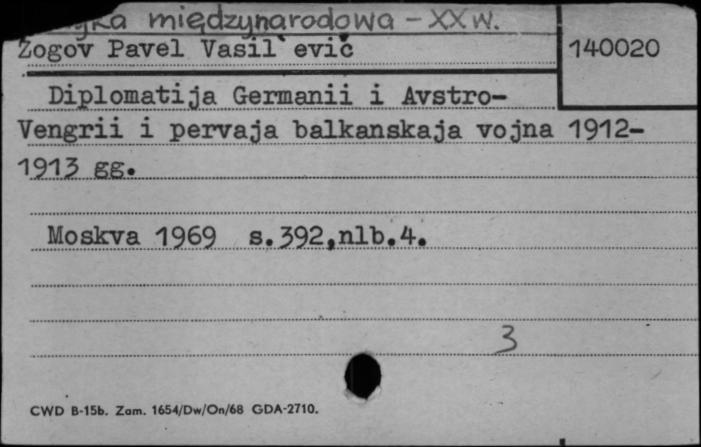 międzynarodowa - XX w.
Zogov Pavel Vasil`evič 140020
Diplomatija Germanii i Avstro-
Vengrii i pervaja balkanskaja vojna 1912-
1913 gg.
Moskva 1969 s.392,nlb.4.
3
CWD B-15b. Zam. 1654/Dw/On/68 GDA-2710.